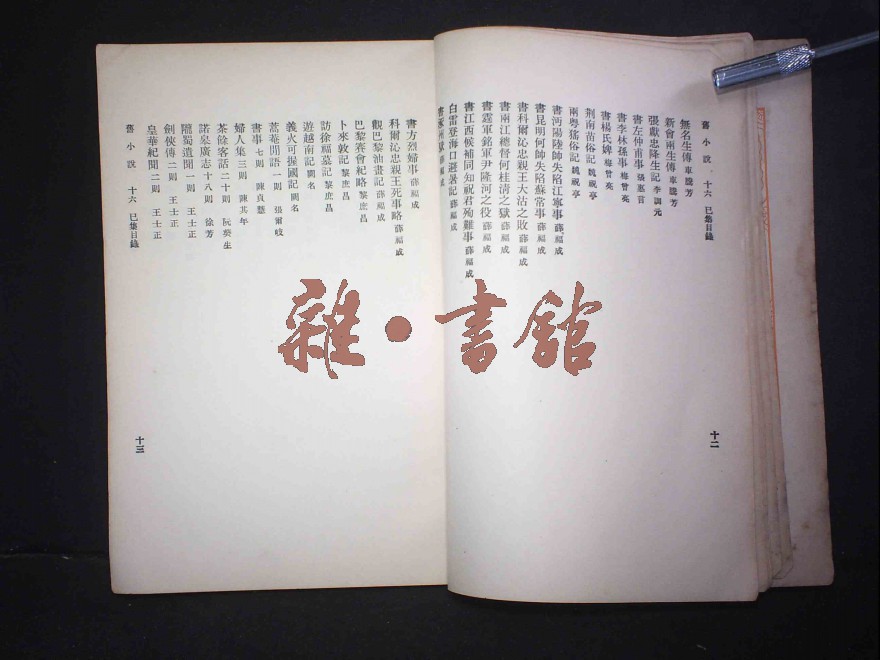 舊小說 十六 已集目錄
無名生傳 車騰芳
新會兩生傳 車騰芳
張獻忠降生記 李調元
書左仲甫事 張惠言
書李林孫事 梅曾亮
書楊氏婢 梅曾亮
荆南苗俗記 魏祝亭
兩粵猺俗記 魏祝亭
書沔陽陸帥失陷江寧事 薛福成
書昆明何帥失陷蘇常事 薛福成
書科爾沁忠親王大沽之敗 薛福成
書兩江總督何桂清之獄 薛福成
書霆軍銘軍尹隆河之役 薛福成
書江西候補同知祝君殉難事 薛福成
白雷登海口避暑記 薛福成
書 州獄 薛福成
十二
書方烈婦事 薛福成
科爾沁忠親王死事略 薛福成
觀巴黎油畫記 薛福成
巴黎賽會紀略 黎庶昌
卜來敦記 黎庶昌
訪徐福墓記 黎庶昌
遊越南記 闕名
義火可握國記 闕名
蒿菴閒語一則 張爾岐
書事七則 陳貞慧
婦人集三則 陳其年
茶餘客話二十則 阮葵生
諾皋廣志十八則 徐芳
隴蜀遺聞一則 王士正
劍俠傳二則 王士正
皇華紀聞二則 王士正
舊小說 十六 已集目錄
十三
雜·書館